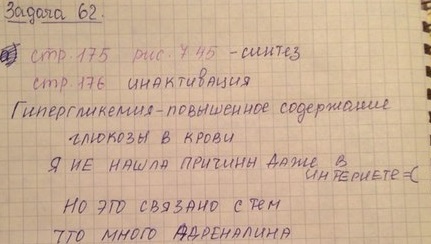 Задача 62.
стр. 175 рис. 7.45 - синтез
стр. 176 инактивация
Гипергликемия - повышенное содержание
глюкозы в крови
Я НЕ НАШЛА ПРИЧИНЫ ДАЖЕ В
ИНТЕРНЕТЕ =(
НО ЭТО СВЯЗАНО С ТЕМ
ЧТО МНОГО АДРЕНАЛИНА